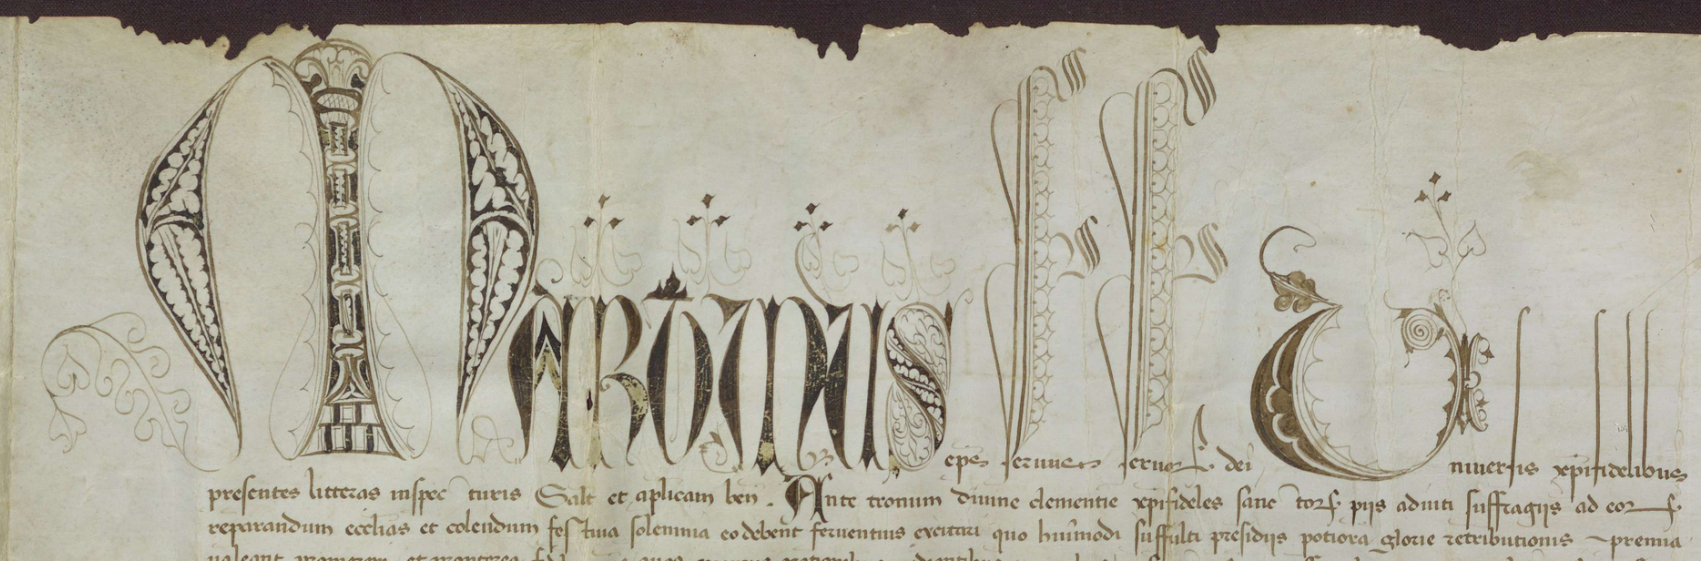 Martinus eps seruus seruor dei Uniuersis xpifidelibus
presentes litteras inspecturis Salt et aplicam ben. Ante tronum diuine clementie xpifideles sanctor piis adiuti suffragijs ad eor
reparandum ecclias et colendum festiua solemnia eo debent feruentius excitari quo huiusmodi suffulti presidijs potiora glorie retributionis premia
ualeant